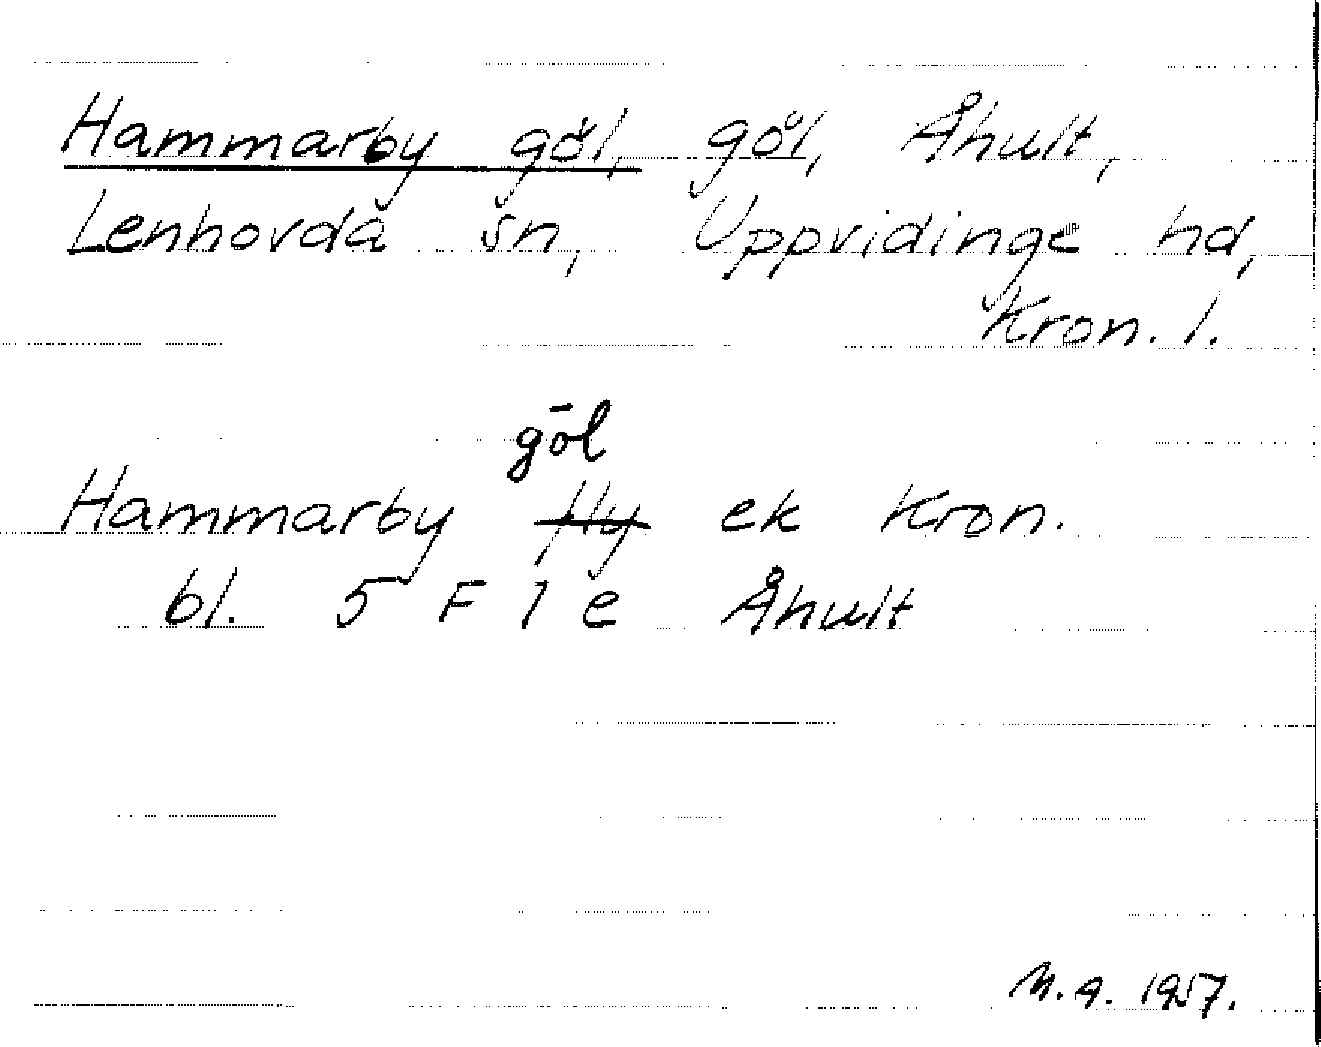 Hammarby göl, göl, Åhult,
Lenhovda sn, Uppvidinge hd,
Kron. l.
göl
Hammarby Fly ek Kron.
bl. 5 F 1 e Åhult
M.A. 1957.